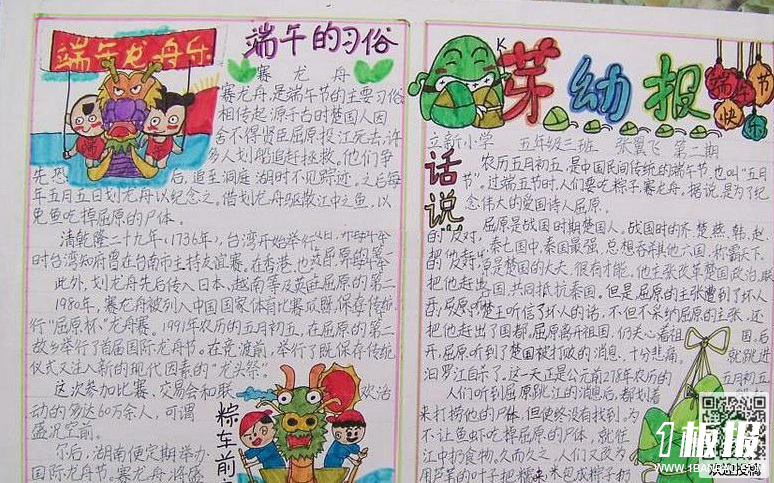 端午龙舟乐
端午的习俗
赛龙舟
赛龙舟,是端午节的主要习俗。
相传起源于古时楚国人因
舍不得贤臣屈原投江死去,许
多人划船追赶拯救。他们争
先恐后,追至洞庭湖时不见踪迹。之后每
年五月五日划龙舟以纪念之。借划龙舟驱散江中之鱼,以
免鱼吃掉屈原的尸体。
清乾隆二十九年(1736年),台湾开始举行
时台湾知府曾在台南市主持友谊赛。在香港,也
此外,划龙舟先后传入日本、越南等及英
1980年,赛龙舟被列入中国国家体育比赛
行"屈原杯"龙舟赛。1991年农历的五月初五,在屈原的第二
故乡举行了首届国际龙舟节。在竞渡前,举行了既保存传统
仪式又注入新的现代因素的"龙头祭"
这次参加比赛、交易会和联欢活
动的多达60万余人,可谓
盛况空前。
尔后,湖南便定期举办
国际龙舟节。赛龙舟将盛
粽车前
芽幼报
端午节
快乐
立新小学 五年级三班 张翼飞 第二期
话说
农历五月初五,是中国民间传统的端午节,也叫"五月
节"。过端五节时人们要吃粽子赛龙舟。据说,是为了纪
念伟大的爱国诗人屈原。
屈原是战国时期楚国人。战国时的齐楚燕韩、赵
秦七国中,秦国最强,总想吞并其他六国,称霸天下。
原是楚国的大夫,很有才能。他主张改革楚国政治,联
国,共同抵抗秦国。但是屈原的主张遭到了坏人
的反对,楚王听信了坏人的话,不但不采纳屈原的主张,还
把他赶出了国都。屈原离开祖国,仍关心着祖国。后
屈原听到了楚国被打败的消息,十分悲痛,就跳进
汨罗江自示了。这一天正是公元前278年农历的五月初五
人们听到屈原跳江的消息后,都划着
来打捞他的尸体,但使终没有找到。为
不让鱼虾吃掉屈原的尸体,就往
江中扔食物。久而久之,人们又改为
用芦苇的叶子把糯米包成粽子扔
1板报
WWW.1BANBAO.COM
欢迎投稿